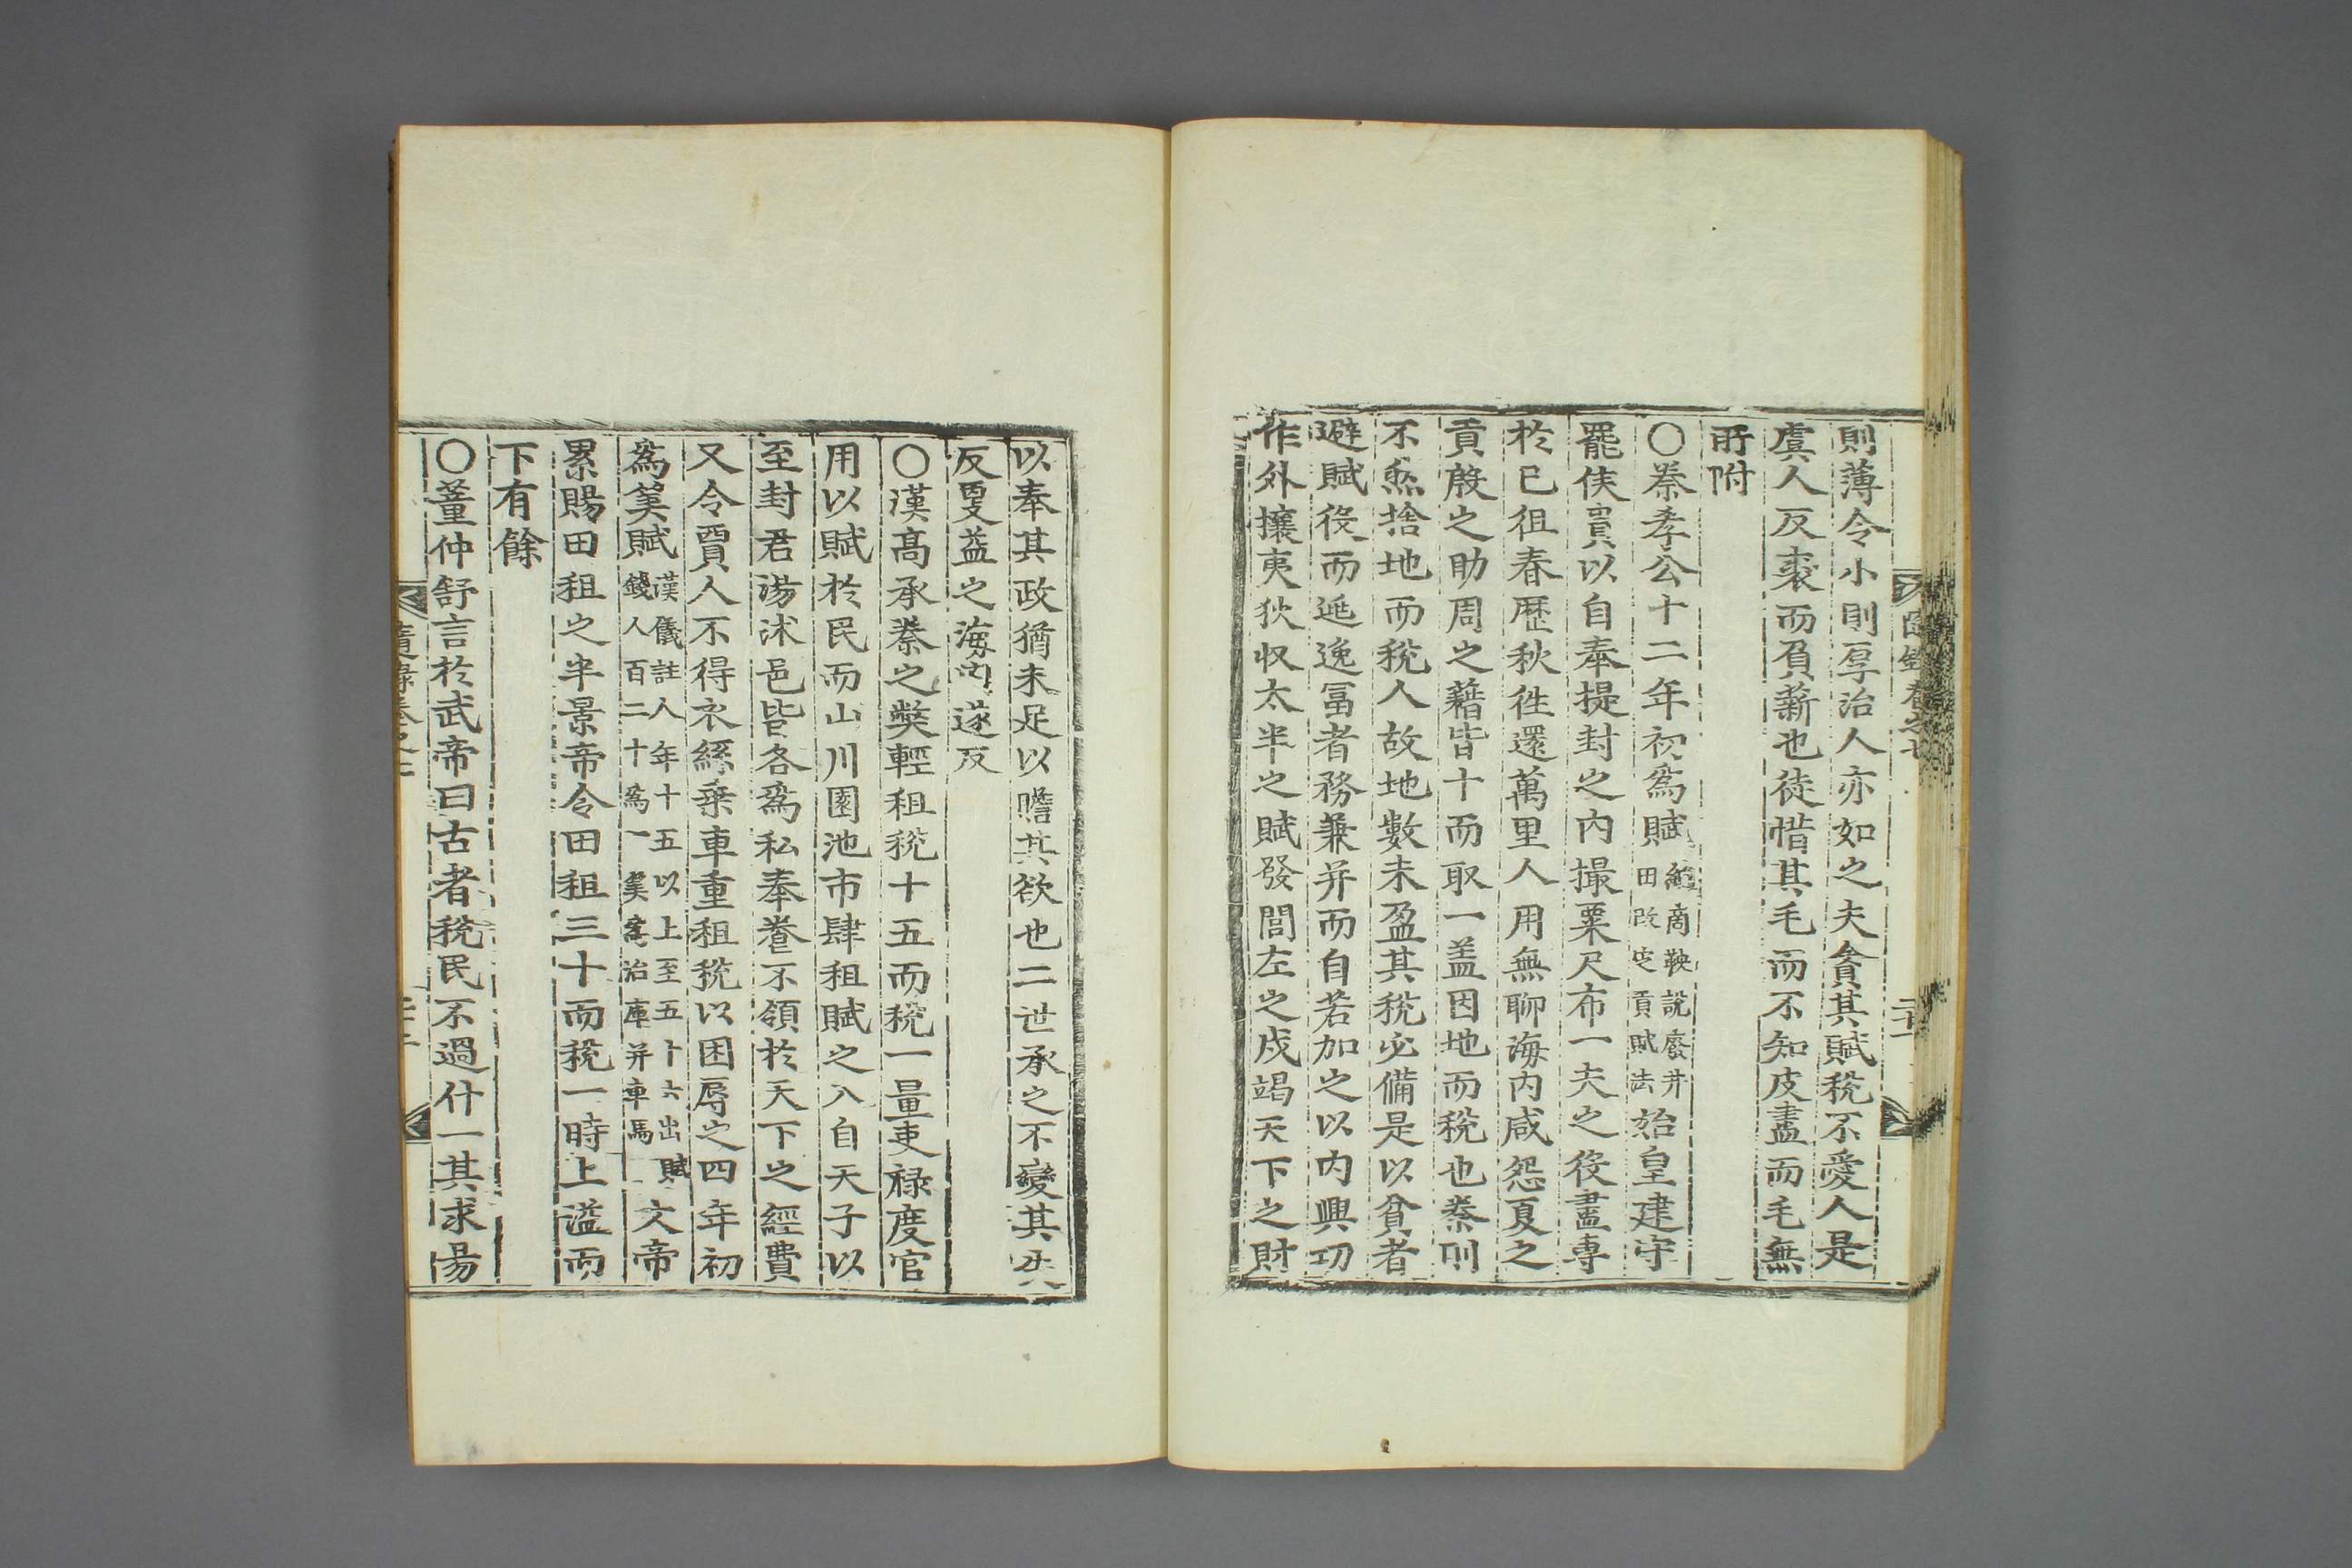 則薄令小則厚治人亦如之夫貪其賦稅不愛人是
虞人反裘而負薪也徒惜其毛而不知皮盡而毛無
所附
○秦孝公十二年初爲賦納商鞅說廢井田改定貢賦法始皇建守
罷侯貴以自奉提封之內撮粟尺布一夫之役盡專
於已徂春歷秋徃還萬里人用無聊海內咸怨夏之
貢殷之助周之藉皆十而取一盖因地而稅也秦則
不然捨地而稅人故地數未盈其稅必備是以貧者
避賦役而逃逸冨者務兼并而自若加之以內興功
作外攘夷狄収太半之賦發閭左之戍竭天下之財
以奉其政猶未足以贍其欲也二世承之不變其失
反更益之海內遂反
○漢髙承秦之獘輕租稅十五而稅一量吏禄度官
用以賦於民而山川園池市肆租賦之入自天子以
至封君湯沐邑皆各爲私奉養不領於天下之經費
又令賈人不得衣絲乗車重租稅以困辱之四年初
爲筭賦漢儀註人年十五以上至五十六出賦錢人百二十爲一筭爲治庫并車馬文帝
累賜田租之半景帝令田租三十而稅一時上溢而
下有餘
○董仲舒言於武帝曰古者稅民不過什一其求昜
隨錄卷之七